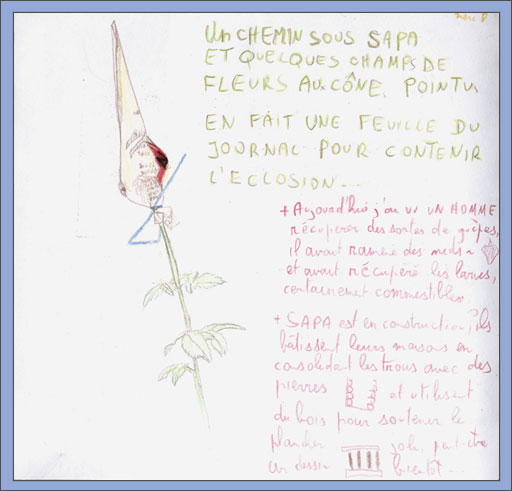 Un CHEMIN SOUS SAPA
ET QUELQUES CHAMPS DE
FLEURS AU CÔNE, POINTU
EN FAIT UNE FEUILLE DU
JOURNAL POUR CONTENIR
L'ECLOSION...
+ Aujourd'hui j'ai vu UN HOMME
récupérer des sortes de guêpes,
il avait ramené des nids
et avait récupéré les larves,
certainement commestibles.
+ SAPA est en construction, ils
bâtissent leurs maisons en
consolidant les trous avec des
pierres et utilisent
du bois pour soutenir le
plancher joli, peut-être
un dessin bientôt...